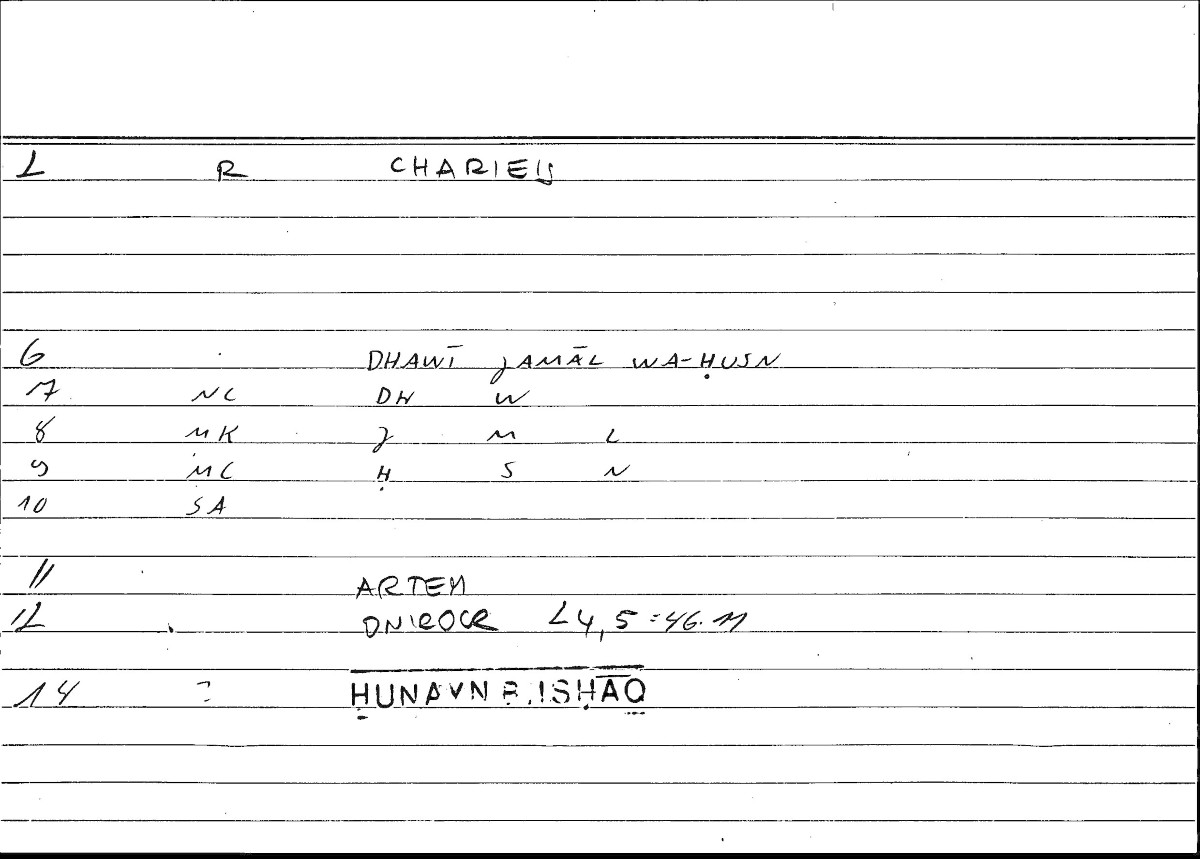 L R CHARIEIS
6 DHAWĪ JAMĀL WA-ḤUSN
7 NC DH W
8 MK J M L
9 MC Ḥ S N
10 SA
11 ARTEM
12 ONIROCR L4,5=46.11
14 ḤUNAYN B. ISḤĀQ